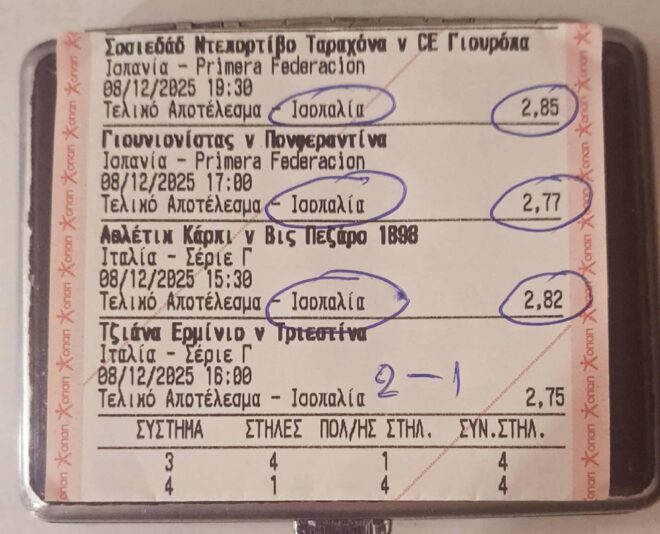 Σοσιεδάδ Ντεπορτίβο Ταραχόνα v CE Γιουρόπα
Ισπανία - Primera Federacion
08/12/2025 19:30
Τελικό Αποτέλεσμα - Ισοπαλία 2,85
Γιουνιονίστας v Πονφεραντίνα
Ισπανία - Primera Federacion
08/12/2025 17:00
Τελικό Αποτέλεσμα - Ισοπαλία 2,77
Αθλέτικ Κάρπι v Βις Πεζάρο 1898
Ιταλία - Σέριε Γ
08/12/2025 15:30
Τελικό Αποτέλεσμα - Ισοπαλία 2,82
Τζιάνα Ερμίνιο v Τριεστίνα
Ιταλία - Σέριε Γ
08/12/2025 16:00
2-1
Τελικό Αποτέλεσμα - Ισοπαλία 2,75
ΣΥΣΤΗΜΑ ΣΤΗΛΕΣ ΠΟΛ/ΗΣ ΣΤΗΛ. ΣΥΝ.ΣΤΗΛ.
3 4 1 4
4 1 4 4